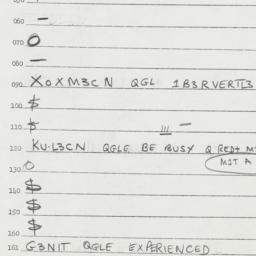 060 —
070 O
080 —
090 XOXM3CN QGL 1B3RVERTL3
100 $
110 $
120 KU·L3CN QGLE BE BUSY Q RED+
MIT A
130 O
140 $
150 $
160 $
161 G3NIT QGLE EXPERIENCED